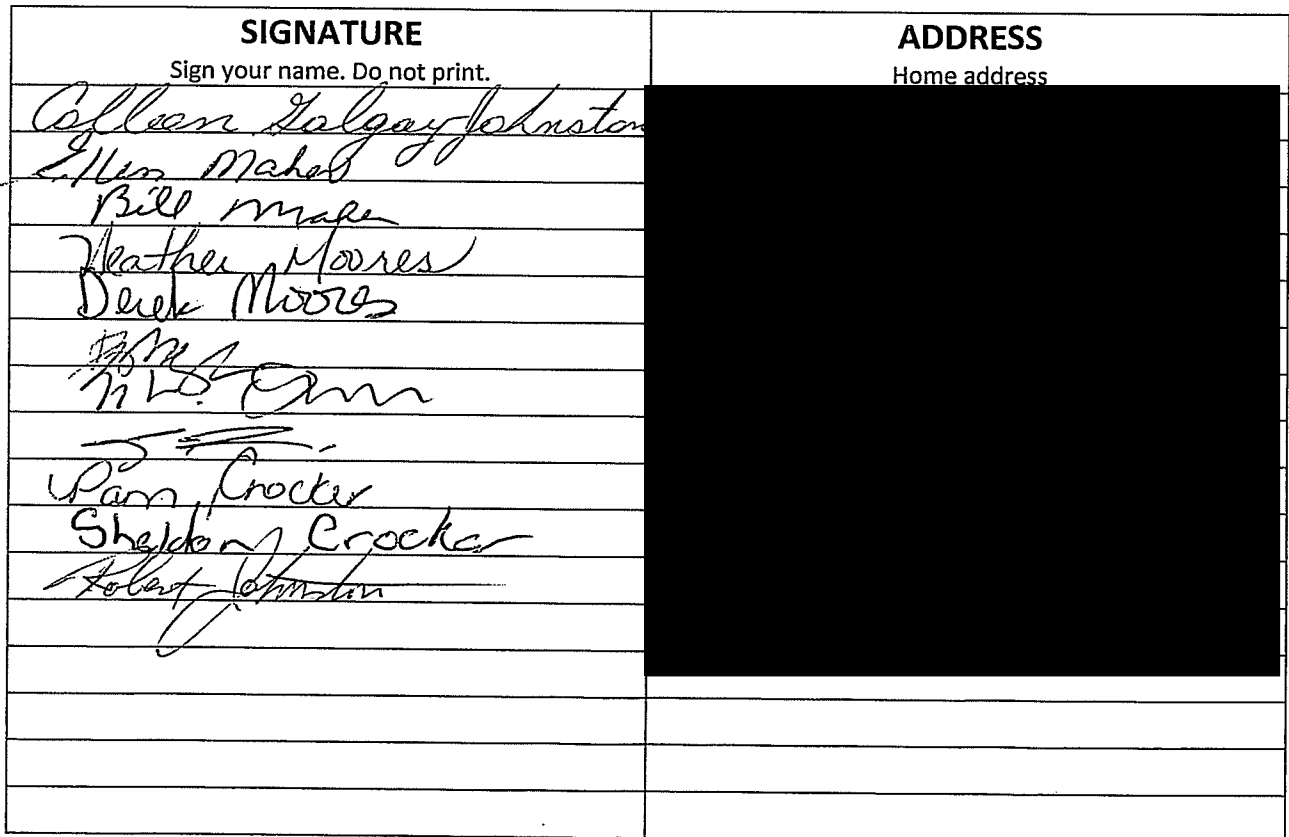 SIGNATURE
Sign your name. Do not print.
ADDRESS
Home address
Colleen Galgay Johnston
Ellen Maher
Bill
Heather Moores
Derek Moores
Pam Crocker
Sheldon Crocker
Robert Johnston